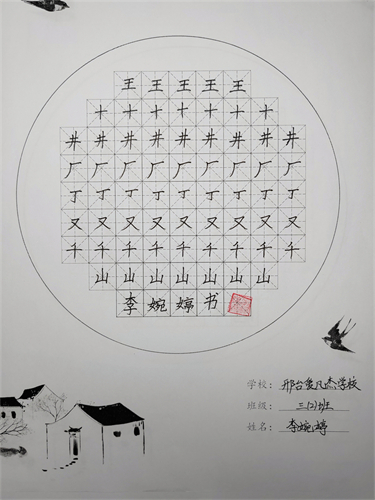 王王王王王
十十十十十十十
井井井井井井井井井
厂厂厂厂厂厂厂厂厂
丁丁丁丁丁丁丁丁丁
又又又又又又又又又
千千千千千千千千千
山山山山山山山
李婉婷书
学校：邢台凡杰学校
班级：三(2)班
姓名：李婉婷